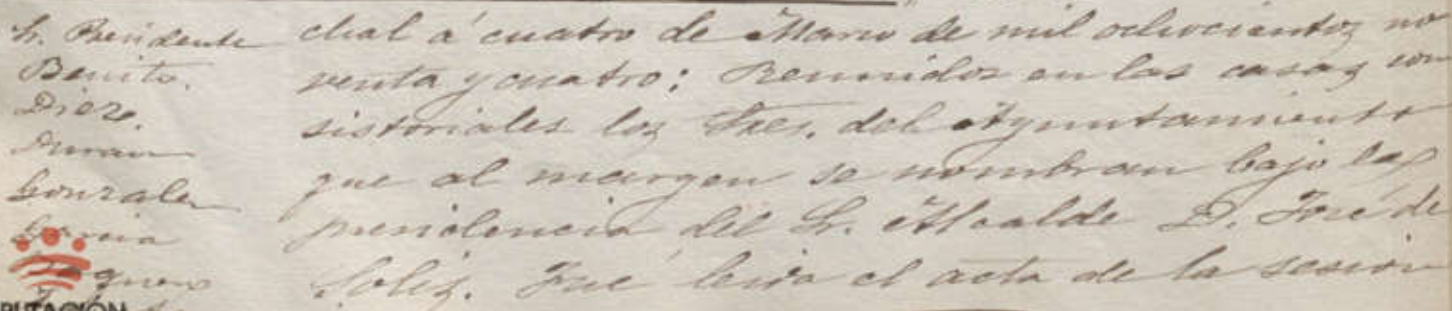 Sr. Presidente
Benito.
Diez.
Duran
Gonzalez
Garcia
chal á cuatro de Marzo de mil ochocientos no
venta y cuatro: Reunidos en las casas con
sistoriales los Sres. del Ayuntamiento
que al margen se nombran bajo la
presidencia del Sr. Alcalde D. José de
Solís. Fué leida el acta de la sesion